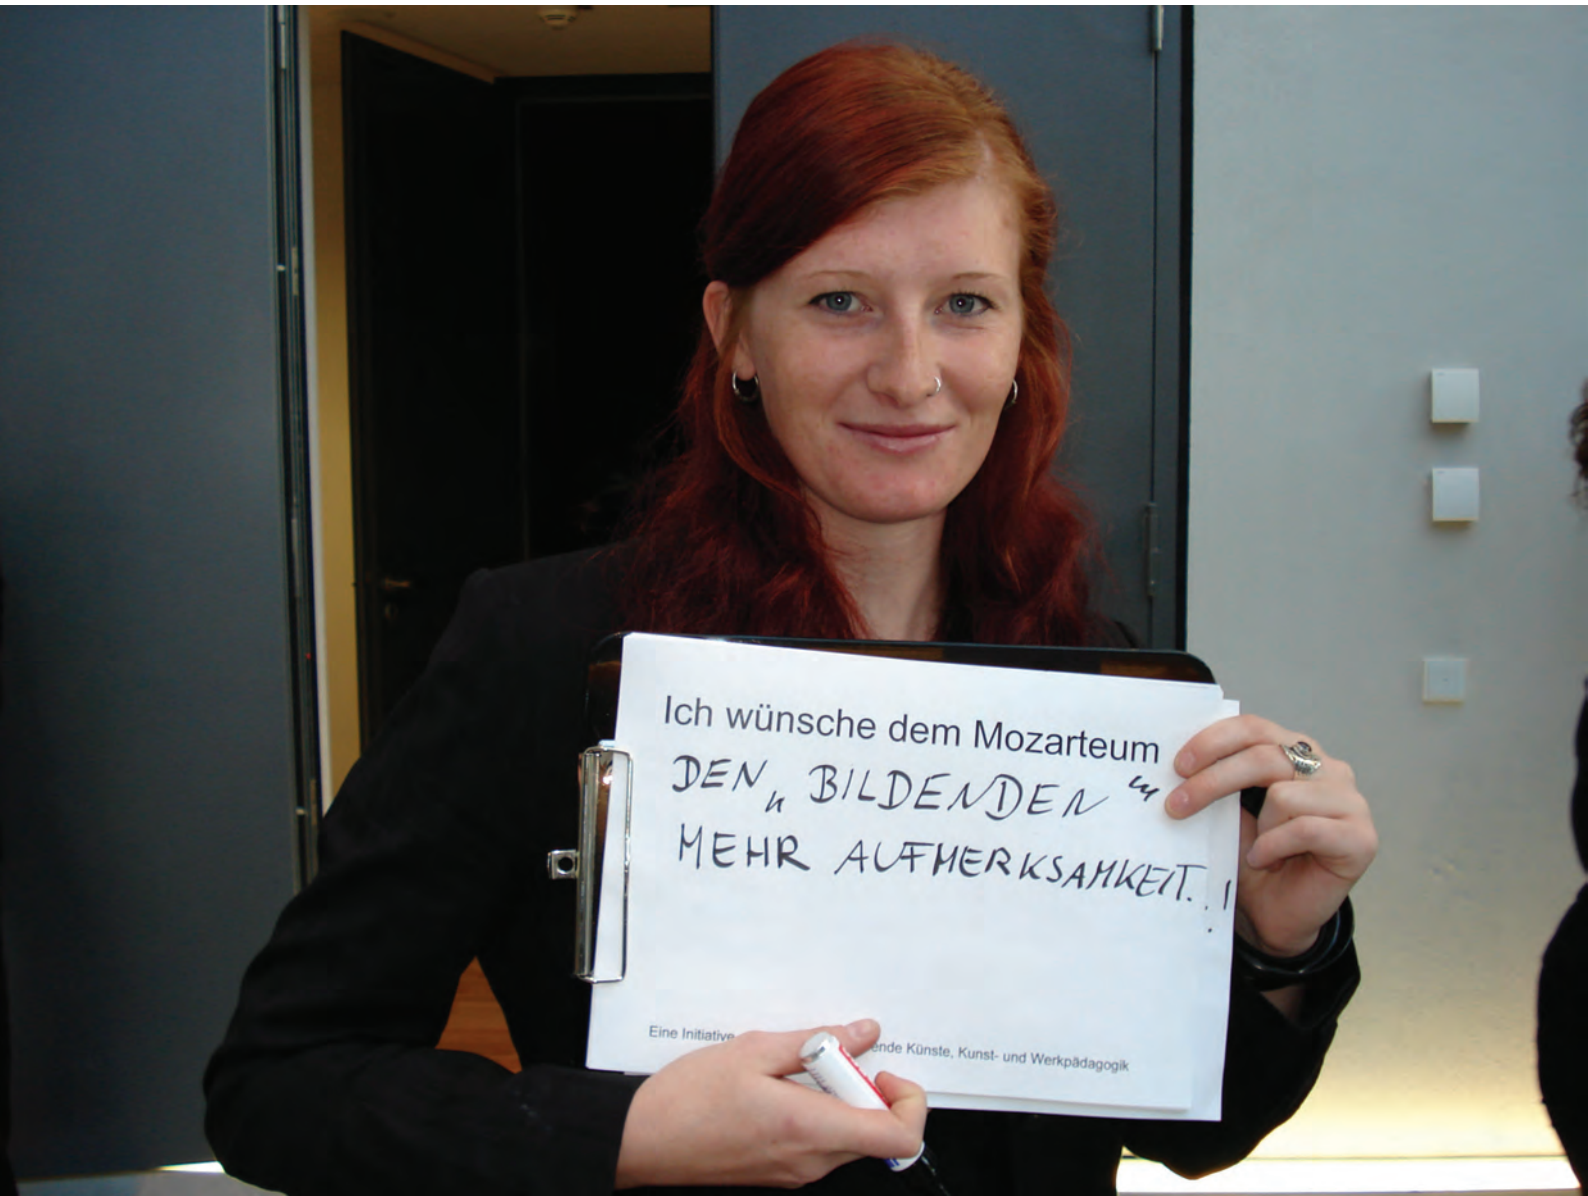 Ich wünsche dem Mozarteum
DEN „BILDENDEN“
MEHR AUFMERKSAMKEIT..!
Eine Initiative ende Künste, Kunst- und Werkpädagogik